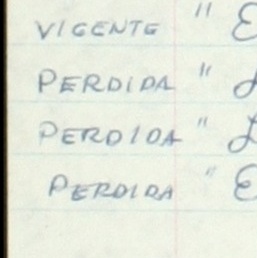 VIGENTE " E
PERDIDA "
PERDIDA "
PERDIDA " E